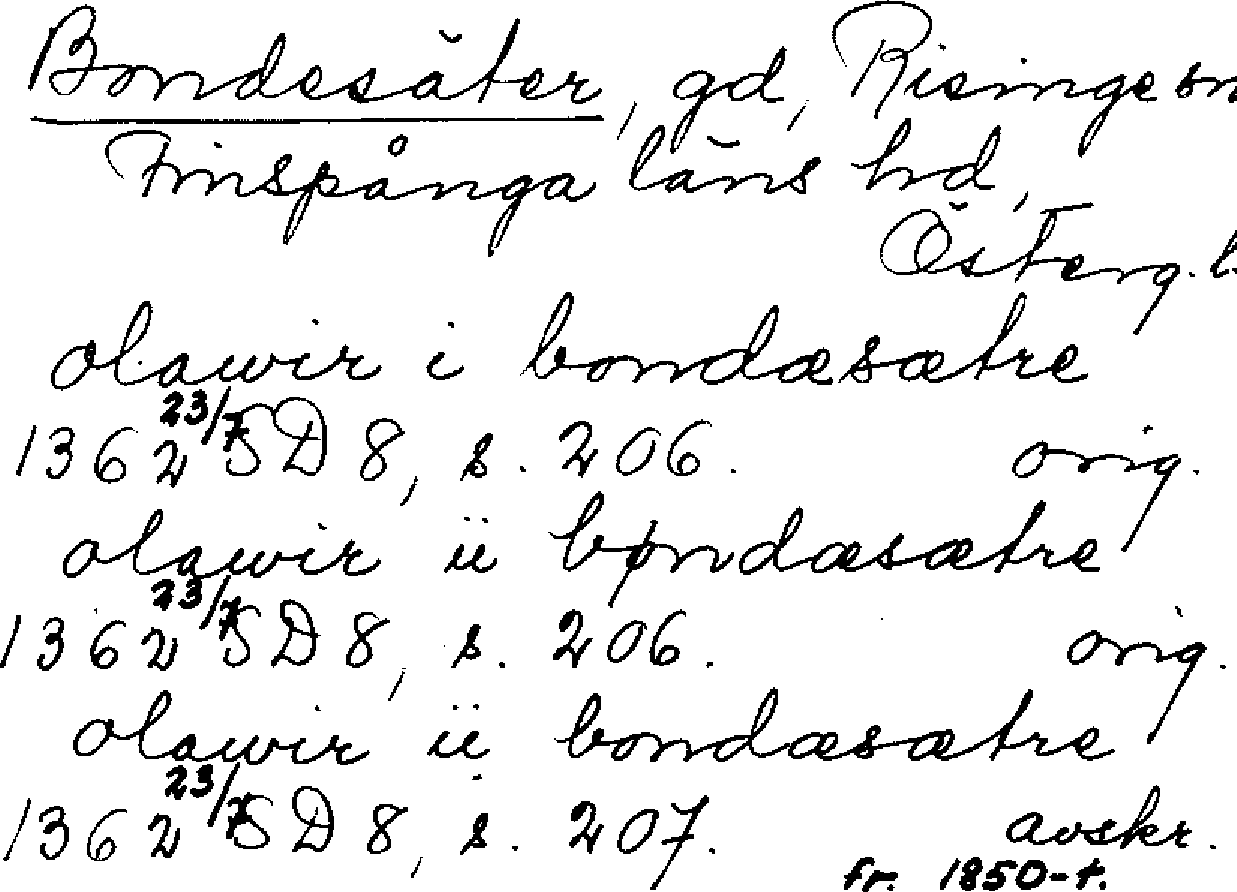 Bondesäter, gd, Risinge sn
Finspånga läns hd,
Österg. l.
olawir i bondæsætre
1362 23/7 SD 8, s. 206. orig.
olawir ii bøndæsætre,
1362 23/7 SD 8, s. 206. orig.
olawir ii bondæsætre,
1362 23/7 SD 8, s. 207. avskr.
fr. 1850-t.